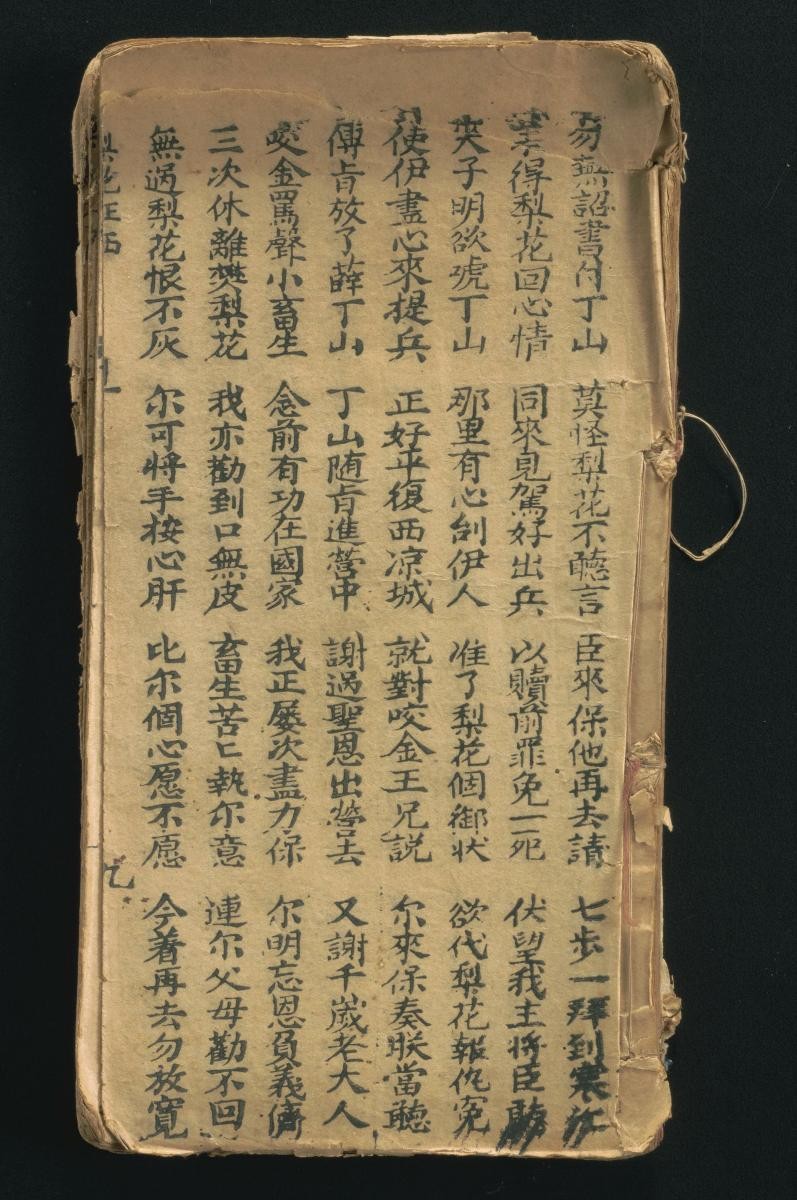 勿無詔書付丁山 莫怪梨花不聽言 臣來保他再去請 七步一拜到寒江
得梨花回心情 同來見駕好出兵 以贖前罪免一死 伏望我主將臣聽
天子明欲號丁山 那里有心刣伊人 准了梨花個御状 欲代梨花報仇冤
使伊盡心來提兵 正好平復西凉城 就對咬金王兄説 尔來保奏朕當聽
傳旨放了薛丁山 丁山随旨進營中 謝過聖恩出營去 又謝千歲老大人
咬金罵聲小畜生 念前有功在國家 我正屡次盡力保 尔明忘恩負義儕
三次休離樊梨花 我亦勸到口無皮 畜生苦匕執尔意 連尔父母勸不回
無過梨花恨不灰 尔可將手按心肝 比尔個心愿不愿 今着再去勿放寬